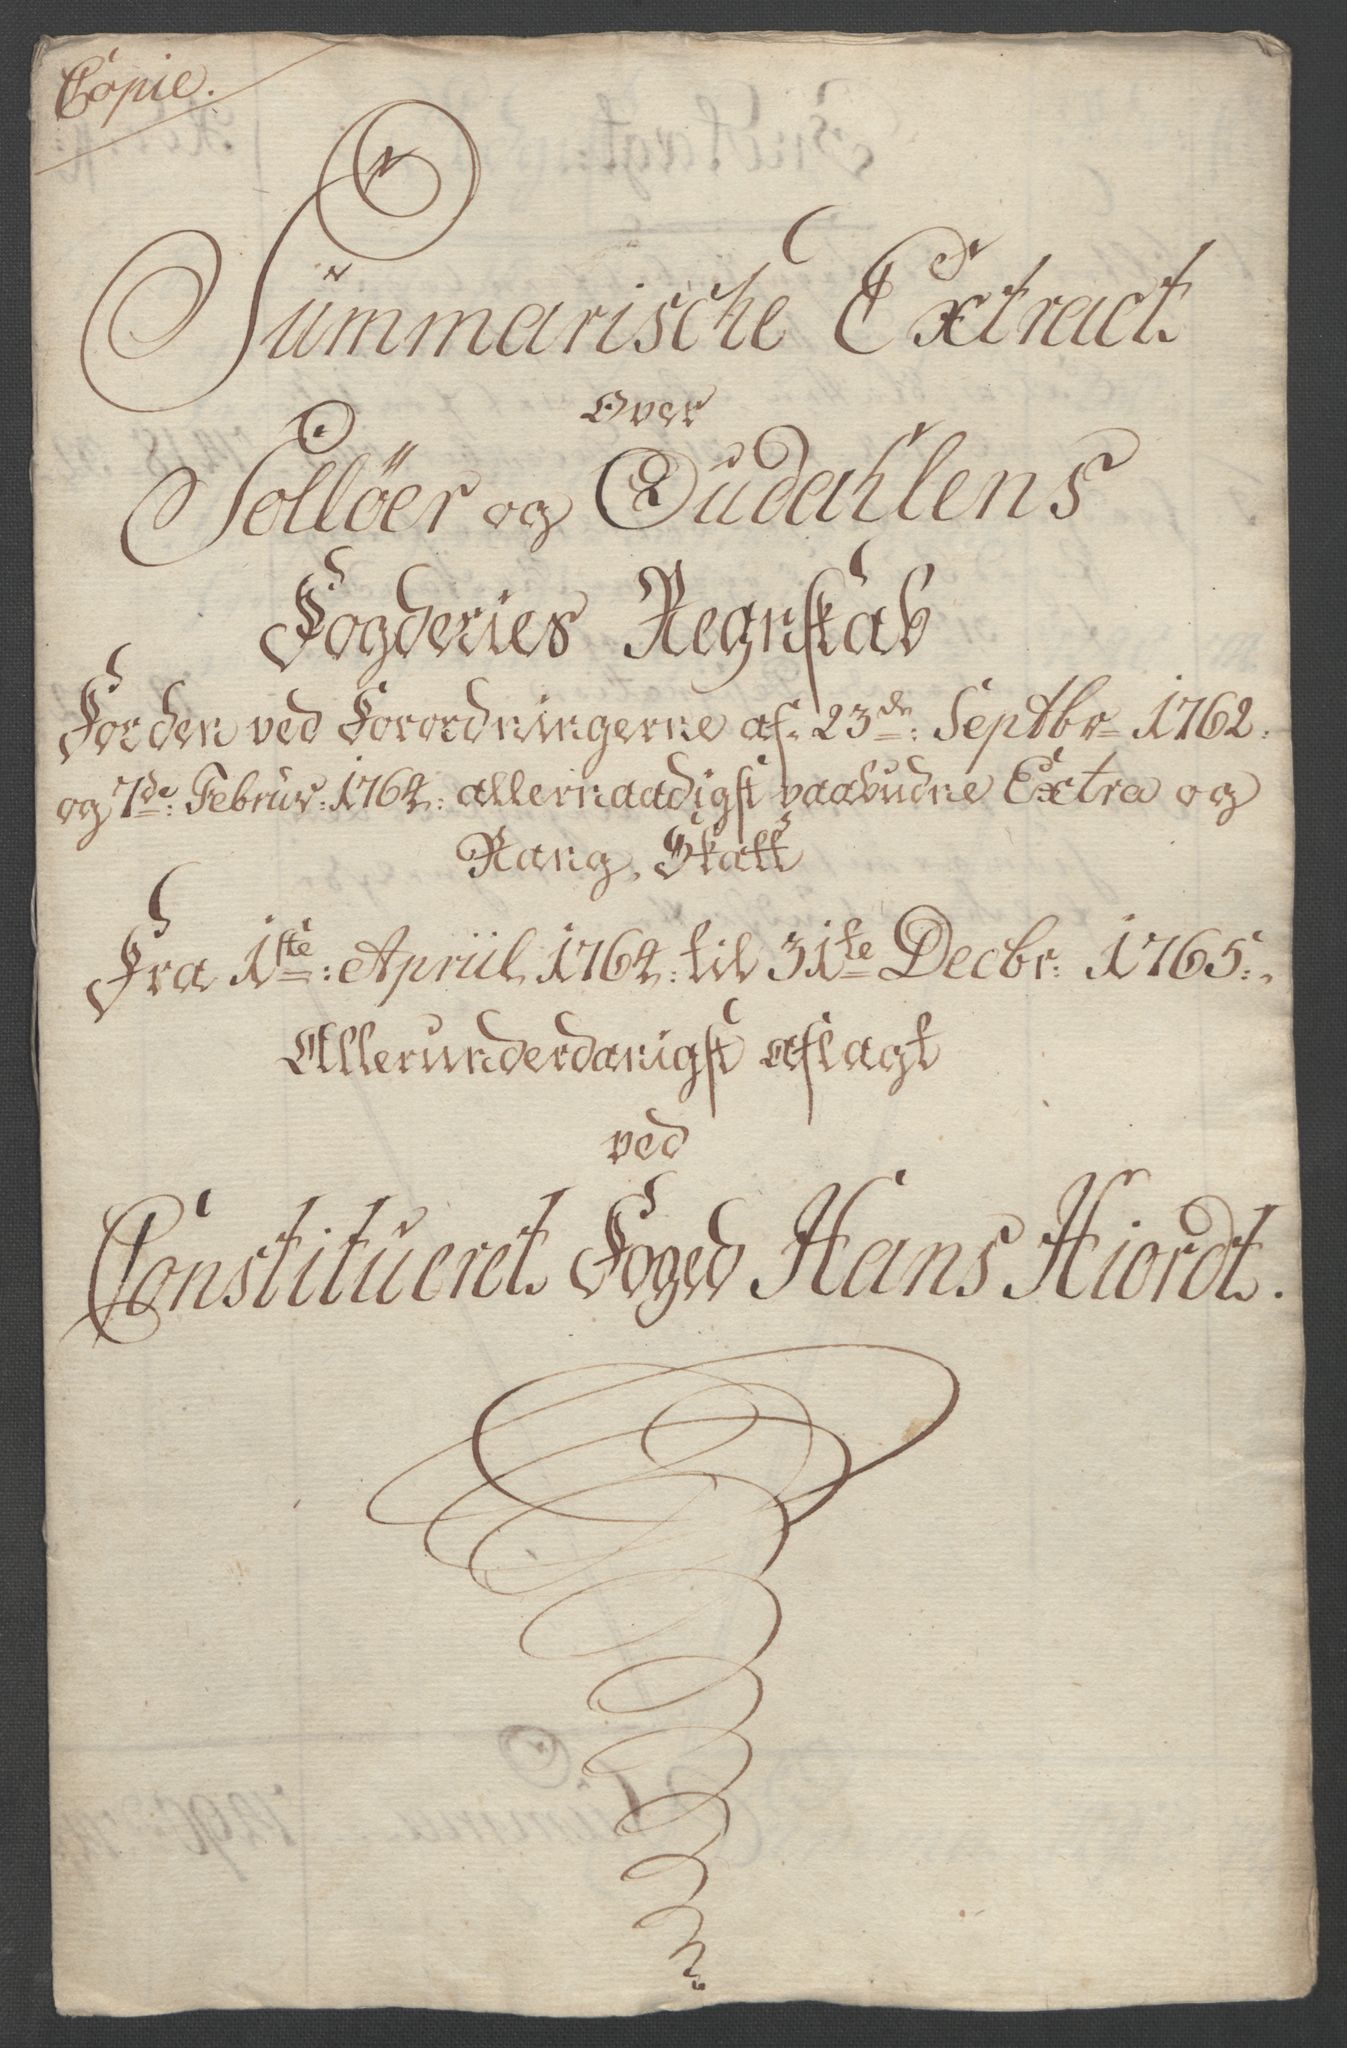 Copie.
Summarische Extract
Over
Sollöer og Oudahlens
Fogderies Regnskab
For den ved Forordningerne af 23de: Septbr 1762.
og 7de: Februr: 1764: allernaadigst paabudne Extra og
Rang, Skatt
Fra 1ste: Apriil 1764: til 31te Decbr: 1765:
Allerunderdanigst aflagt
ved
Constitueret Foged Hans Hiordt.